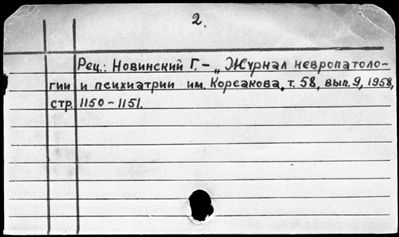 2.
Рец.: Новинский Г. – „Журнал невропатоло-
гии и психиатрии им. Корсакова, т. 58, вып. 9, 1958,
стр. 1150 – 1151.